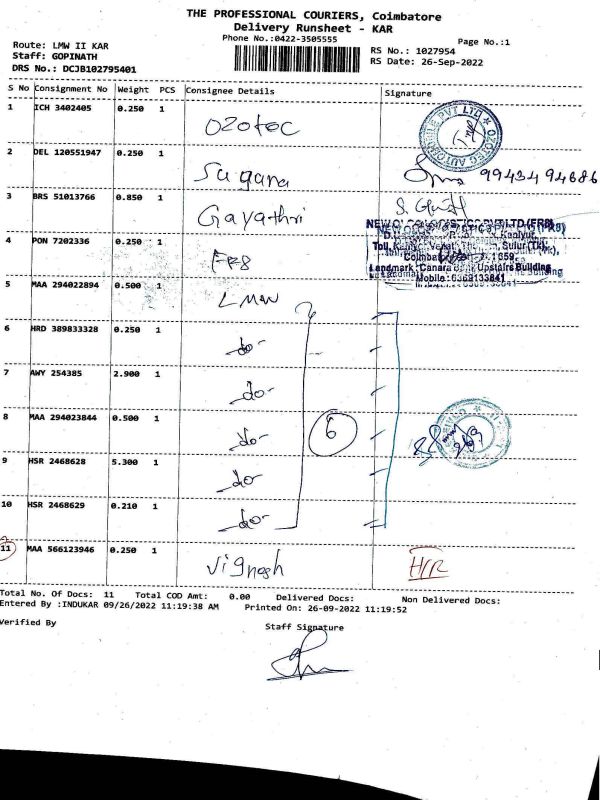 THE PROFESSIONAL COURIERS, Coimbatore
Delivery Runsheet - KAR
Phone No.:0422-3505555
Page No.:1
Route: LMW II KAR
Staff: GOPINATH
DRS No.: DCJB102795401
RS No.: 1027954
RS Date: 26-Sep-2022
S No Consignment No Weight PCS Consignee Details Signature
1 ICH 3402405 0.250 1 Ozotec
OZOTEC AUTOMOBILE PVT LTD
2 DEL 120551947 0.250 1 Sugana 9943494686
3 BRS 51013766 0.850 1 Gayathri
4 PON 7202336 0.250 1 FRS
Coimbatore
Landmark: Canara Bank Upstairs Building
Mobile: 6369133841
5 MAA 294022894 0.500 1 LMW
6 HRD 389833328 0.250 1 -do-
7 AWY 254385 2.900 1 -do-
8 MAA 294023844 0.500 1 -do- 6
9 HSR 2468628 5.300 1 -do-
10 HSR 2468629 0.210 1 -do-
11 MAA 566123946 0.250 1 Vignesh H/R
Total No. Of Docs: 11 Total COD Amt: 0.00 Delivered Docs: Non Delivered Docs:
Entered By :INDUKAR 09/26/2022 11:19:38 AM Printed On: 26-09-2022 11:19:52
Verified By Staff Signature